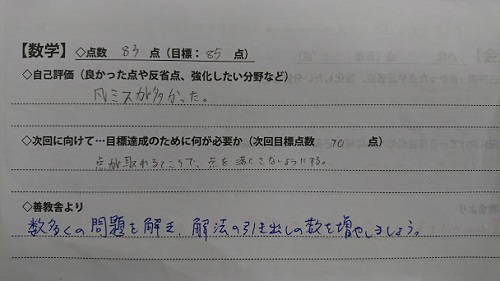 【数学】 ◇点数 83 点(目標: 85 点)
◇自己評価(良かった点や反省点、強化したい分野など)
凡ミスが多かった。
◇次回に向けて…目標達成のために何が必要か(次回目標点数 70 点)
点が取れるところで、点を落とさないようにする。
◇善教舎より
数多くの問題を解き、解法の引き出しの数を増やしましょう。